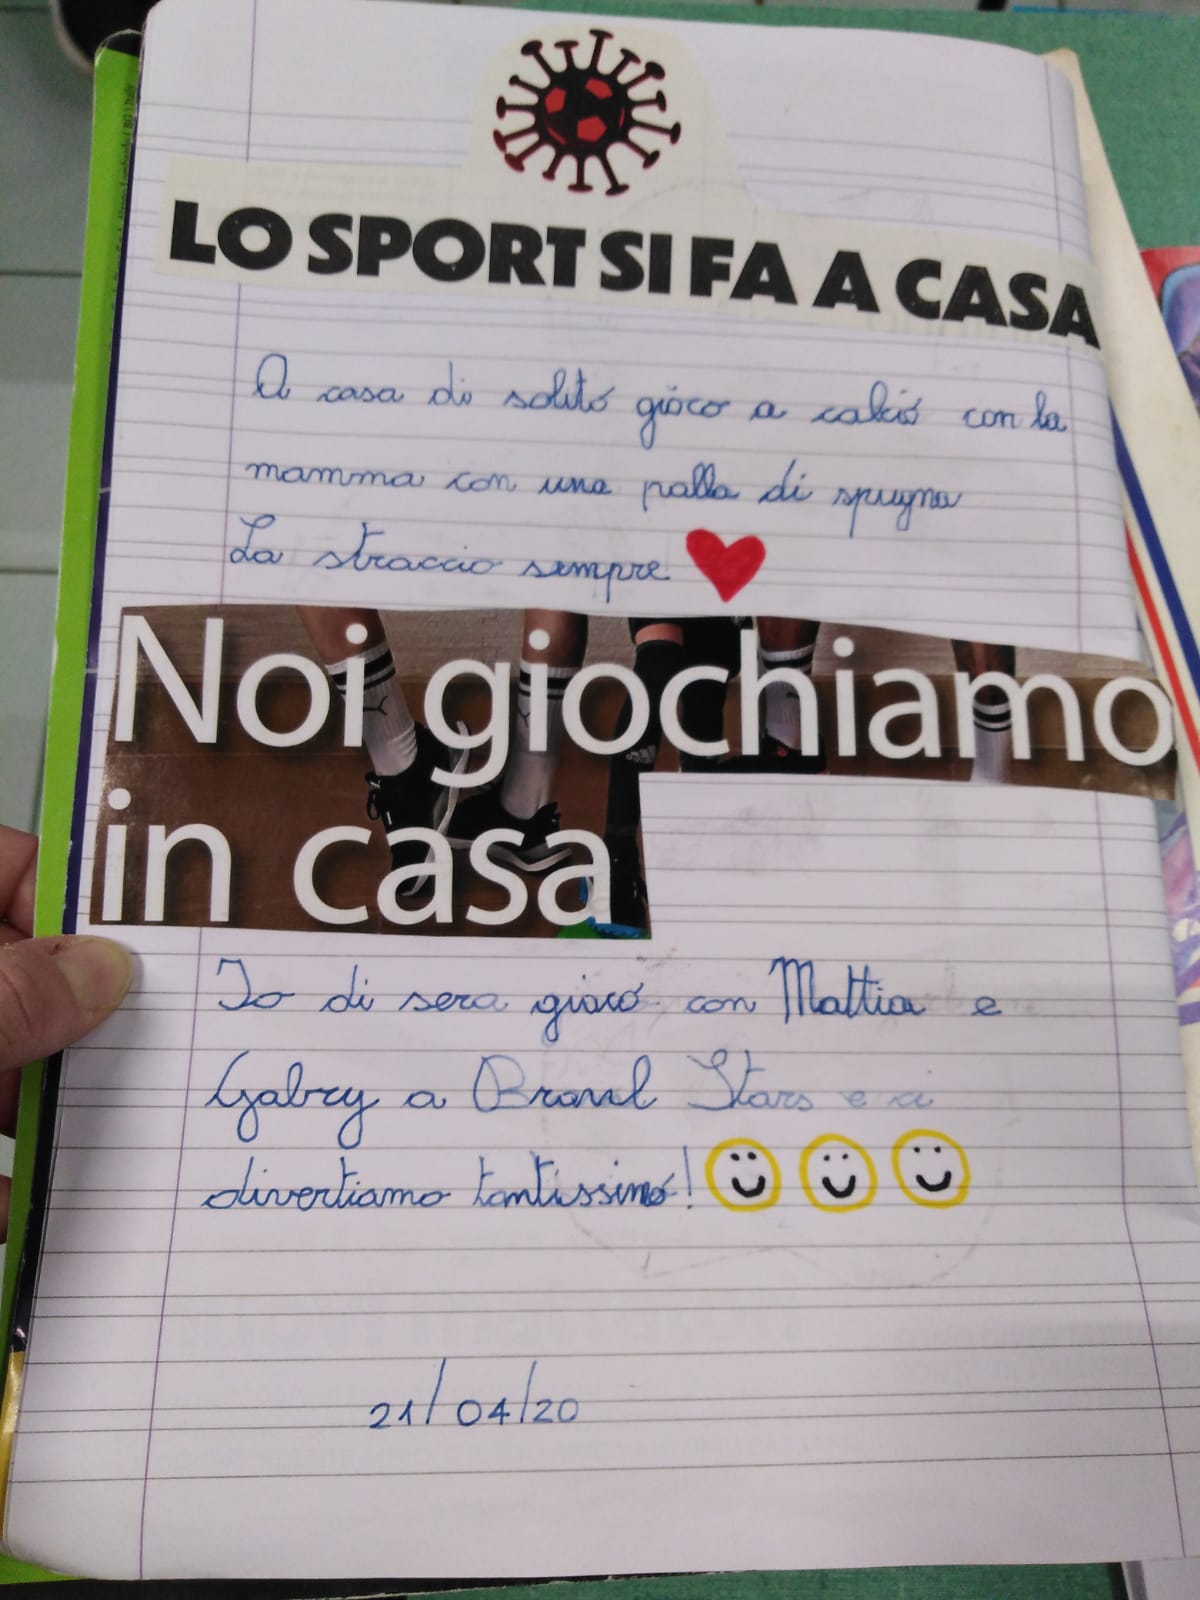 LO SPORT SI FA A CASA
A casa di solito gioco a calcio con la
mamma con una palla di spugna
La straccio sempre
Noi giochiamo
in casa
Io di sera gioco con Mattia e
Gabry a Brawl Stars e ci
divertiamo tantissimo!
21/04/20